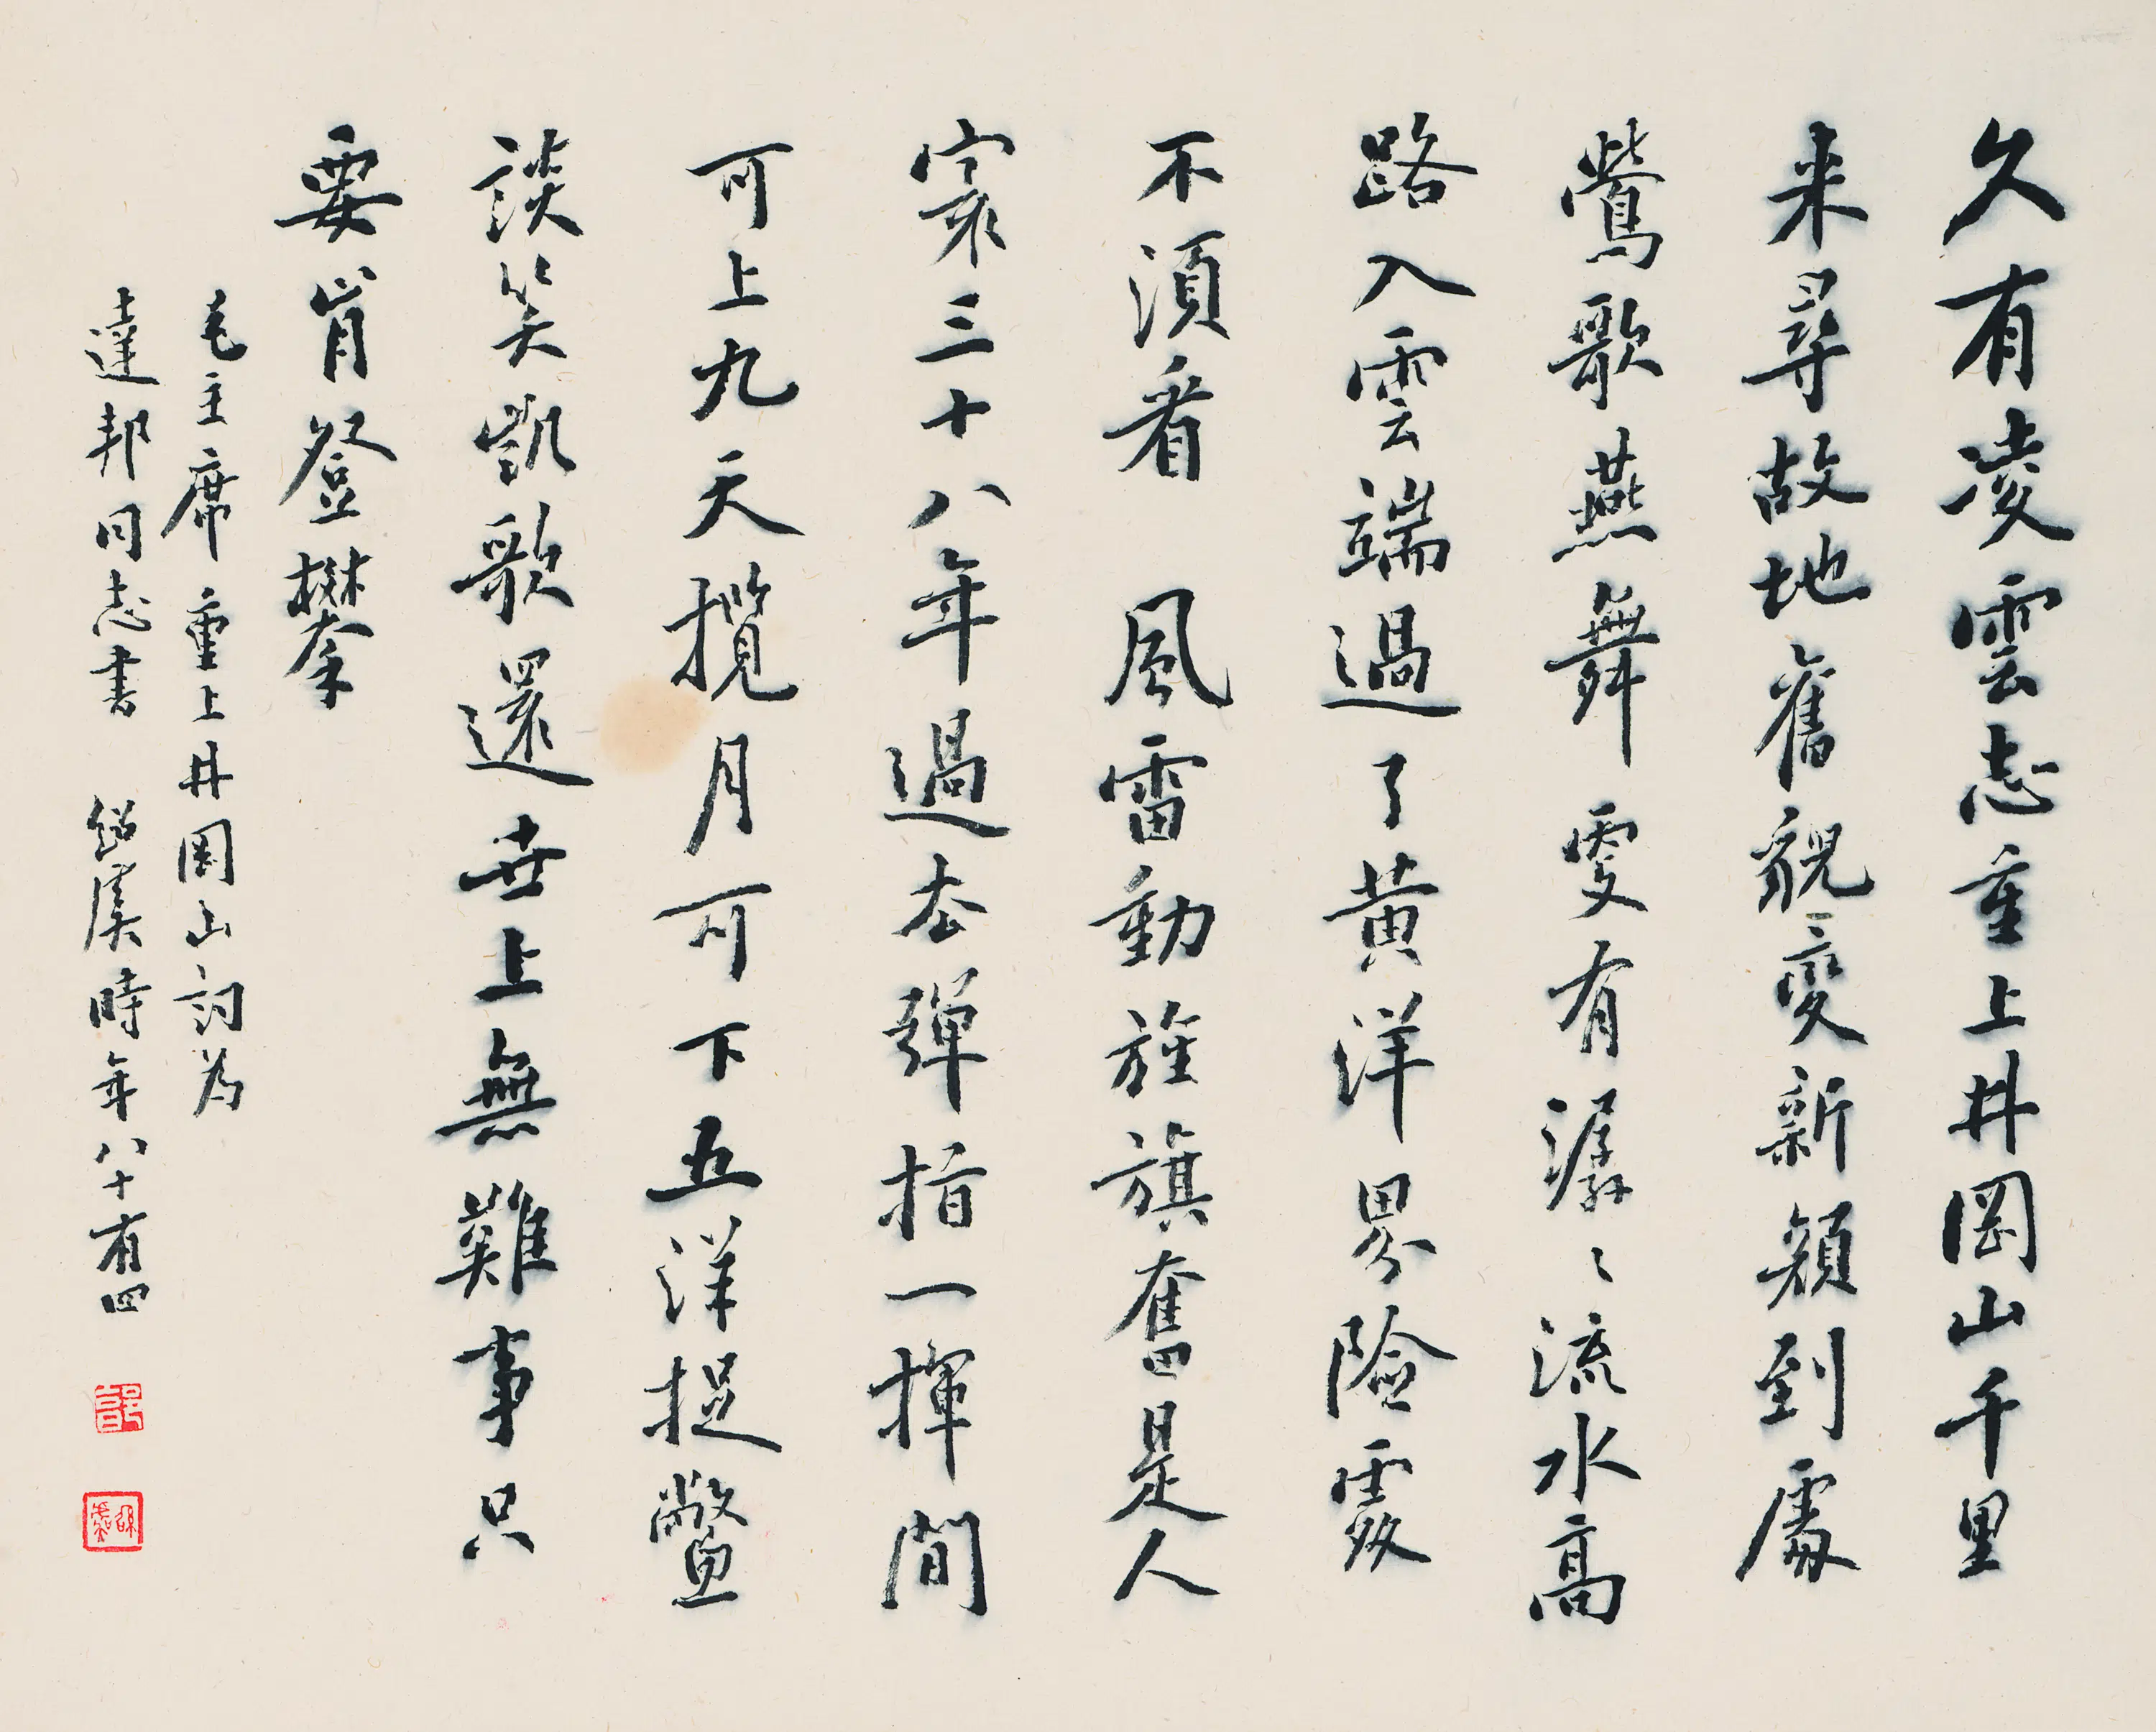 久有凌雲志重上井岡山千里
来尋故地舊貌變新顏到處
鶯歌燕舞更有潺〻流水高
路入雲端過了黄洋界險處
不須看 風雷動旌旗奮是人
寰三十八年過去彈指一揮間
可上九天攬月可下五洋捉鱉
談笑凱歌還世上無難事只
要肯登攀
毛主席重上井岡山詞為
達邦同志書 紹虞時年八十有四
郭
紹虞